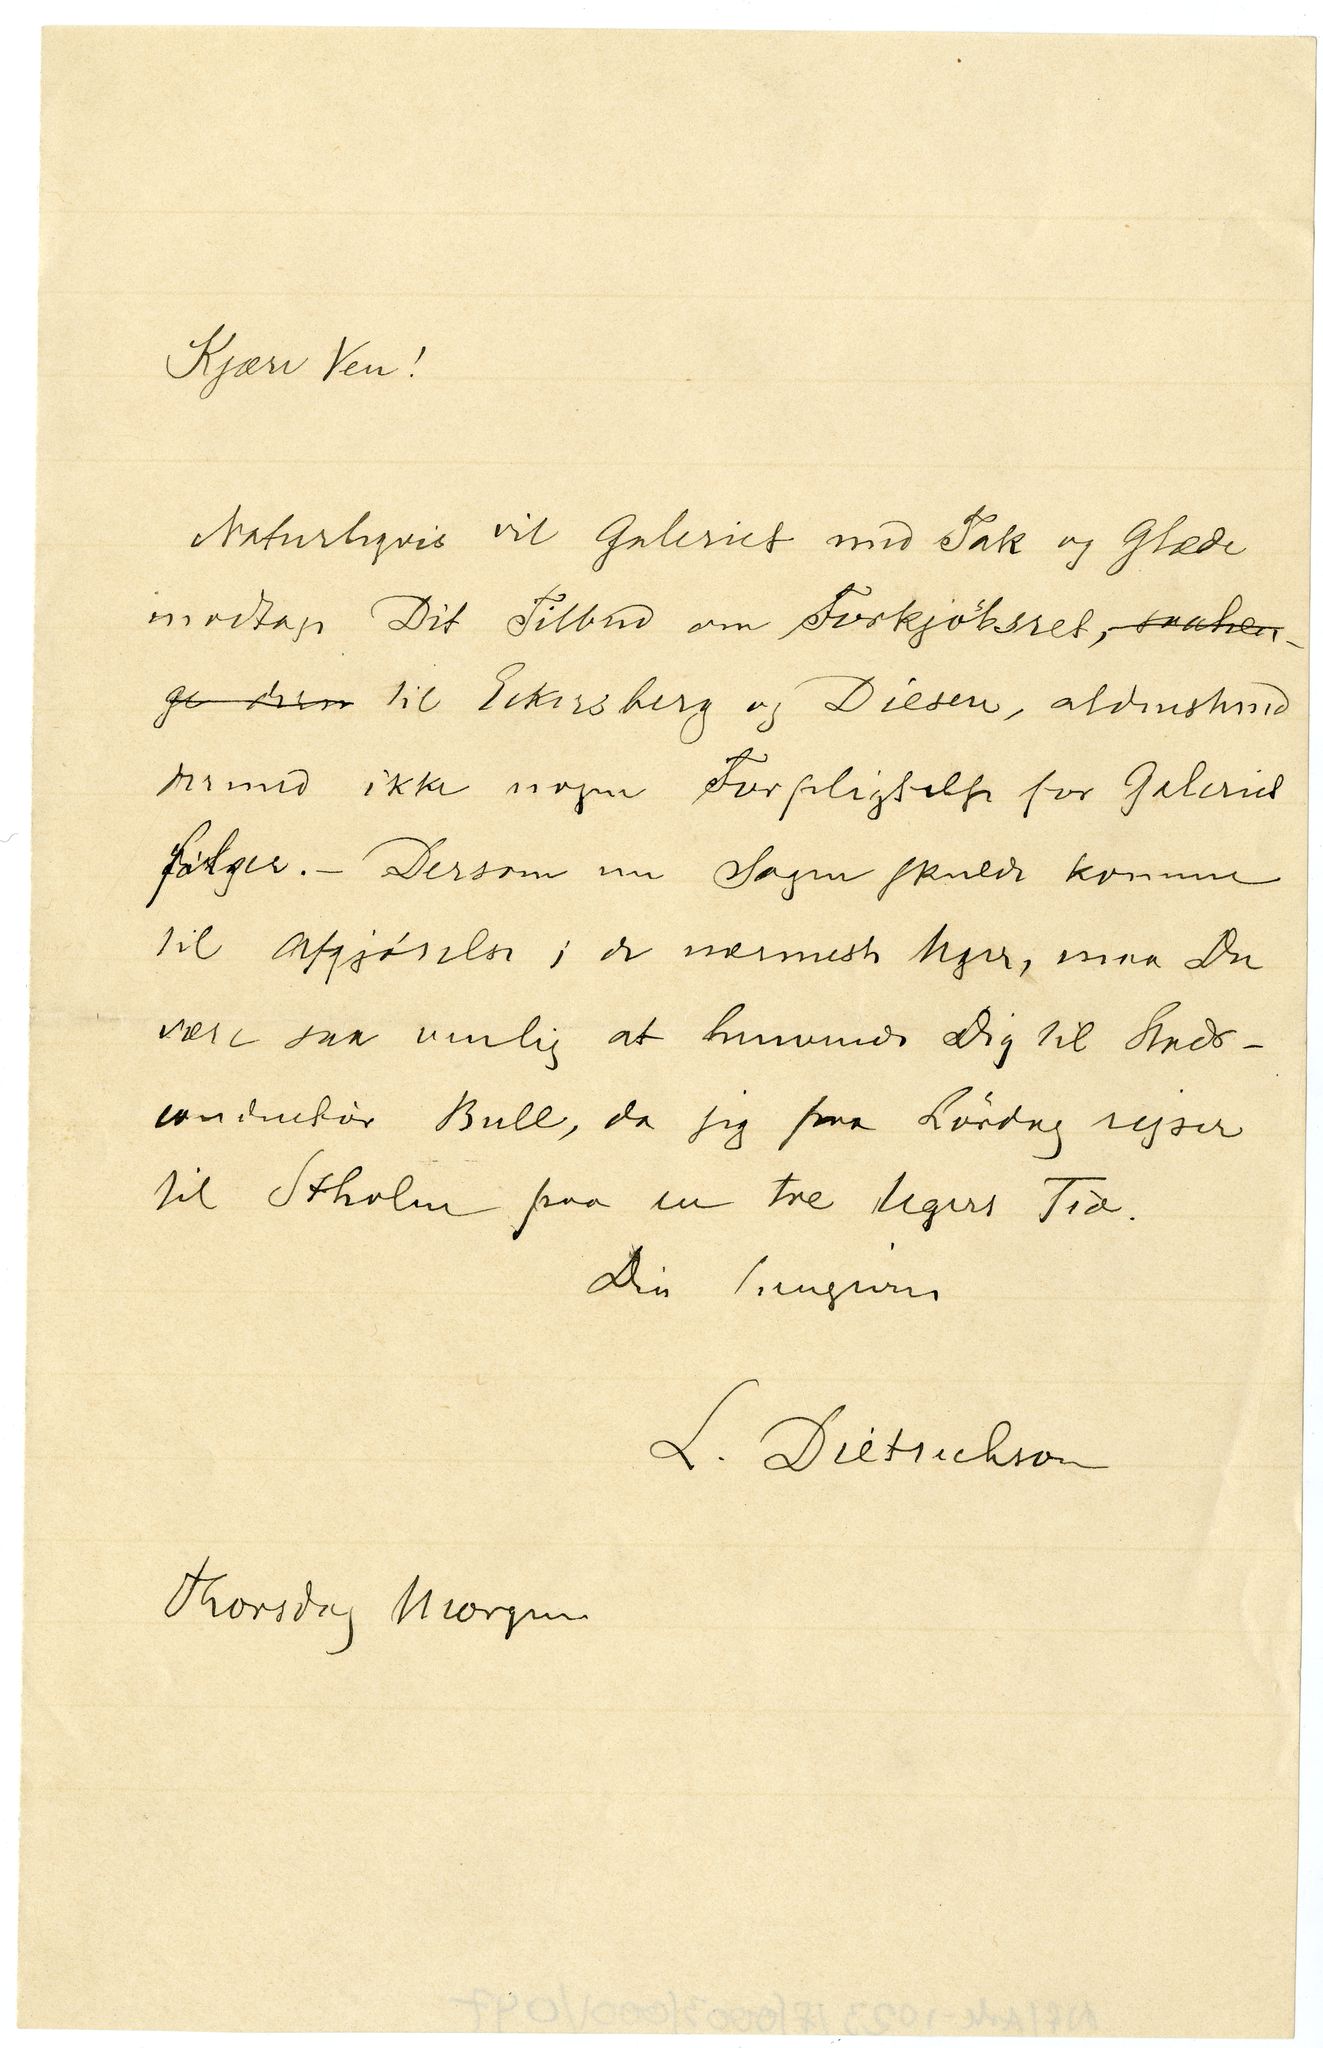 Kjære Ven!
Naturligvis vil Galeriet med Tak og Glæde
modtage Dit Tilbud om Forkjöbsret, saalæn-
ge dem til Eckersberg og Diesen, aldenstund
dermed ikke nogen Forpligtelse for Galeriet
følger. – Dersom nu Sagen skulde komme
til Afgjörelse i de nærmeste Uger, maa Du
være saa venlig at henvende Dig til Stads-
conductör Bull, da jeg paa Lördag rejser
til Stholm paa en tre Ugers Tid.
Din hengivne
L. Dietrichson
Thorsdag Morgen